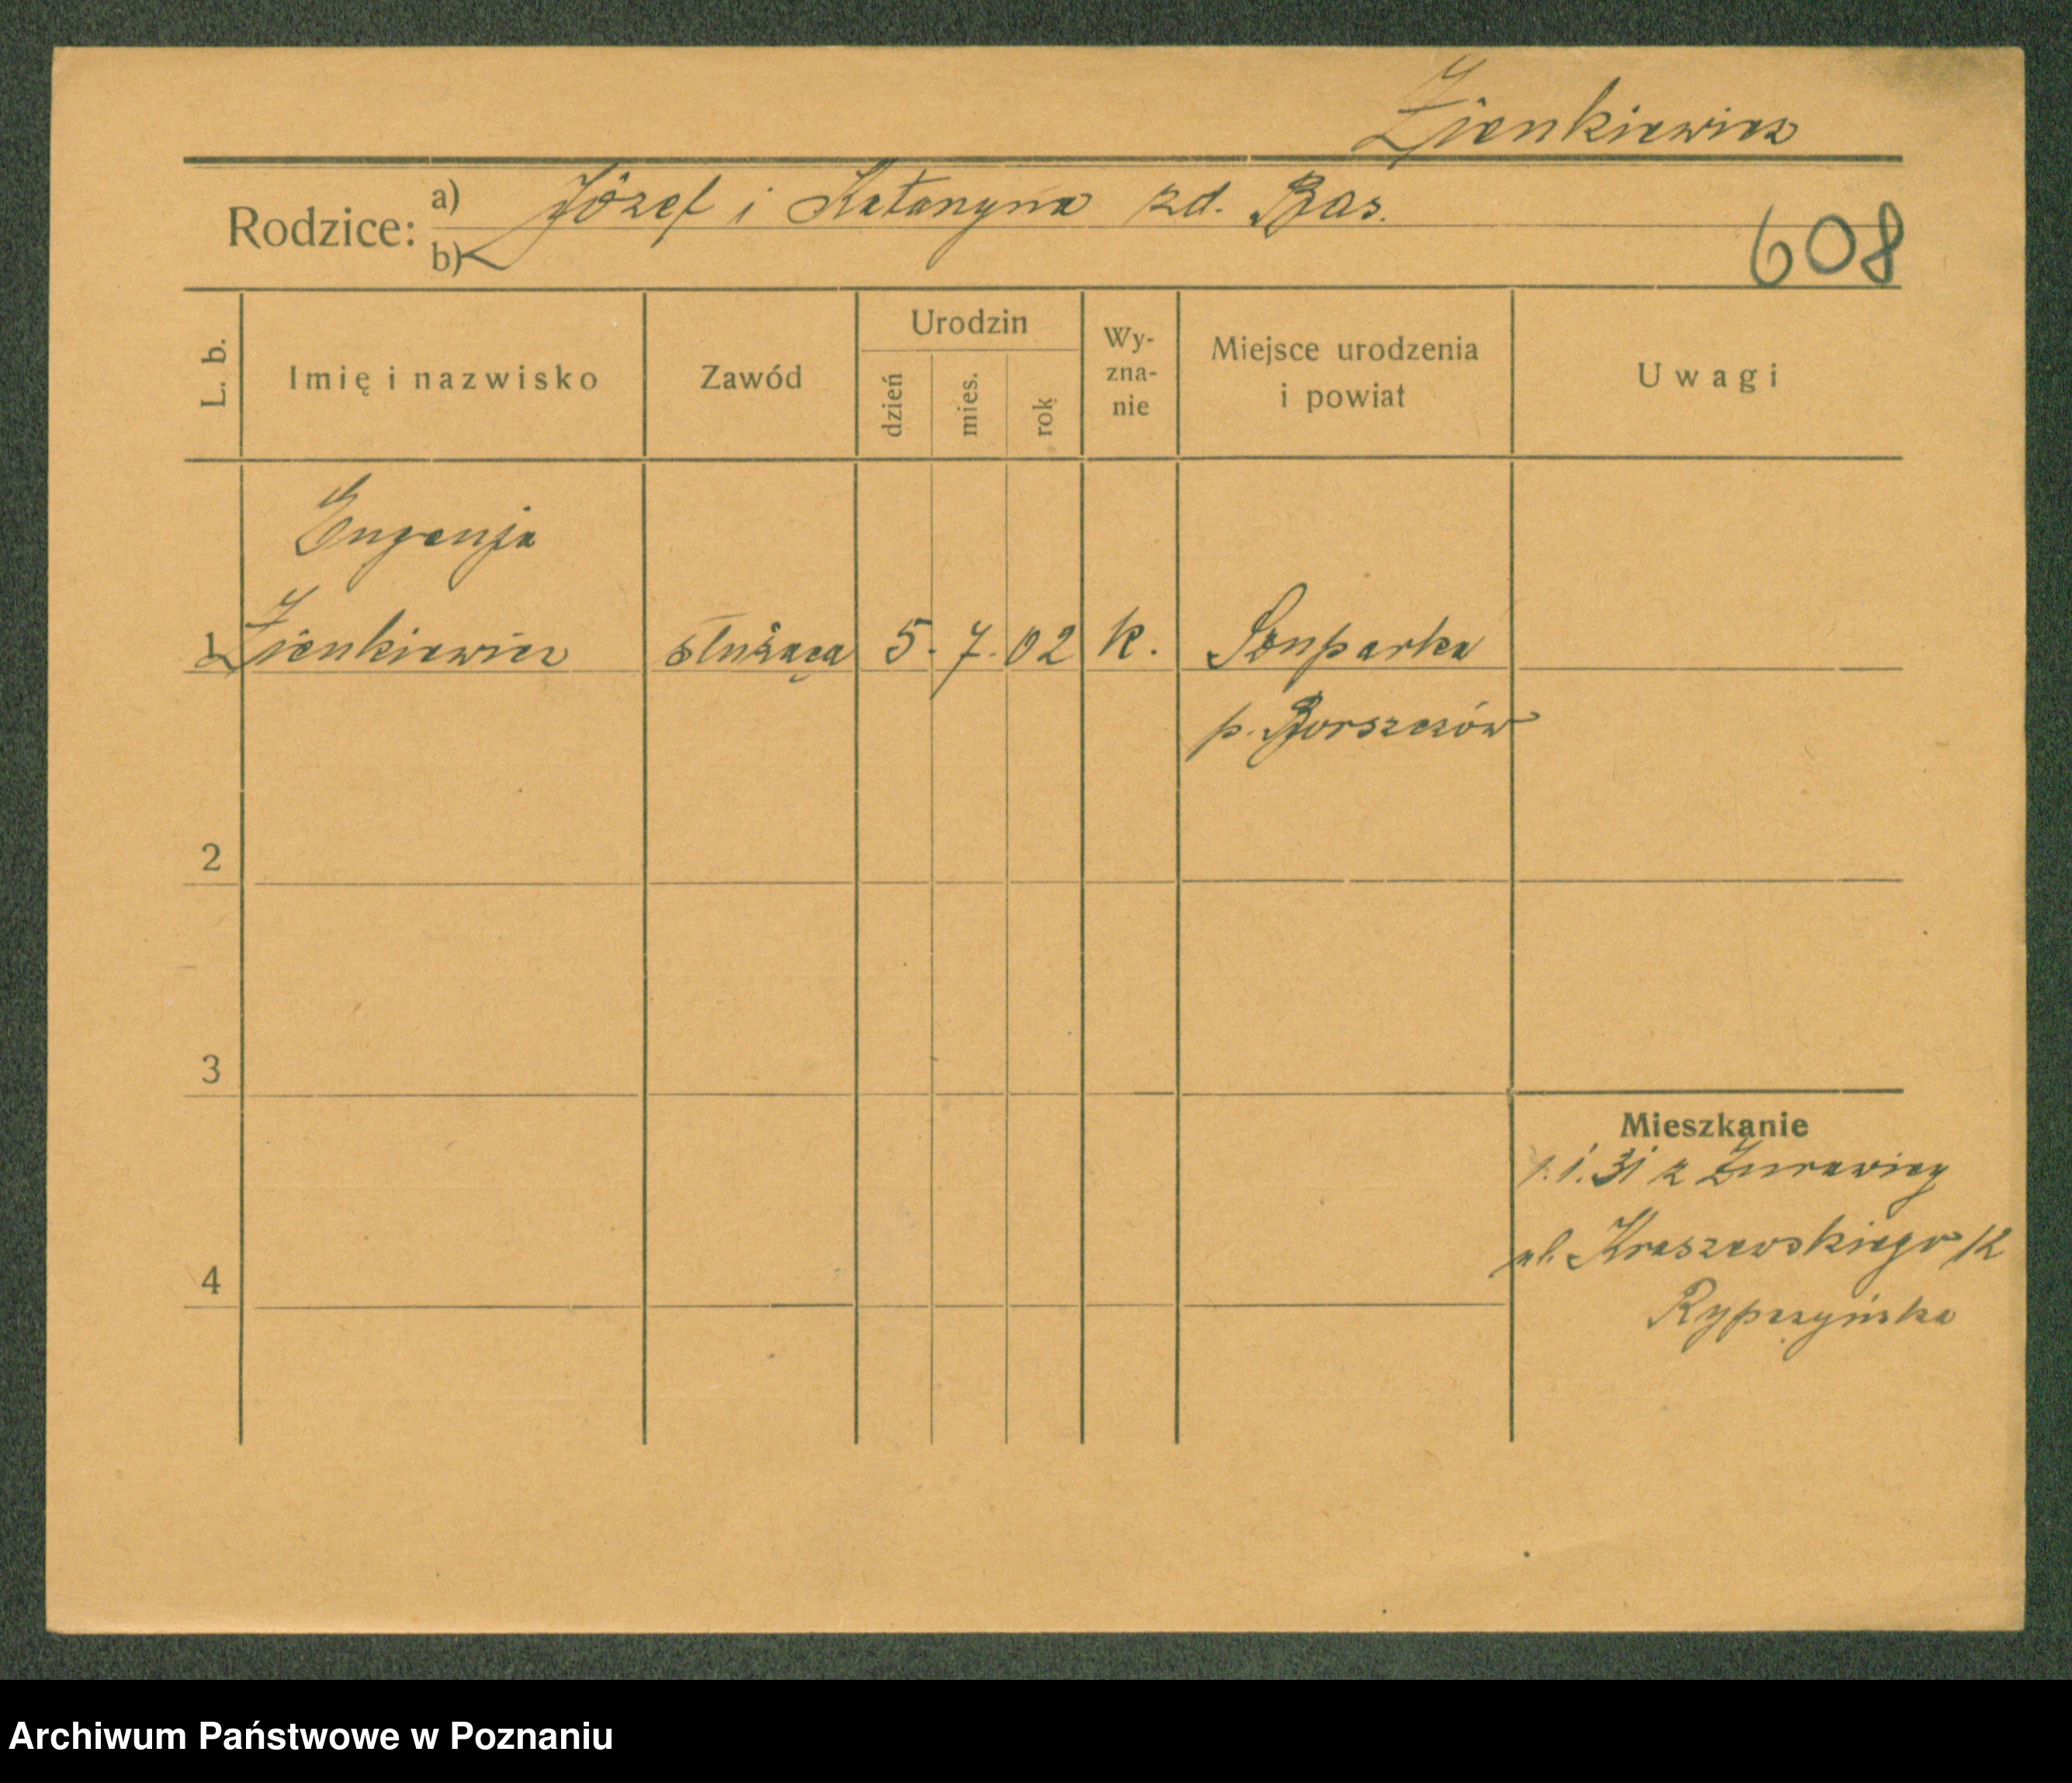 Zienkiewicz
Rodzice: a) Józef i Katarzyna zd. Bas.
b)
608
L. b.
Imię i nazwisko
Zawód
Urodzin
dzień
mies.
rok
Wy-
zna-
nie
Miejsce urodzenia
i powiat
Uwagi
Eugenja
1 Zienkiewicz służąca 5. 7. 02 k. Szuparka
p. Borszczów
2
3
Mieszkanie
1.1.31 z Żurawicy
ul. Kraszewskiego 12
4
Rypczyńska
Archiwum Państwowe w Poznaniu